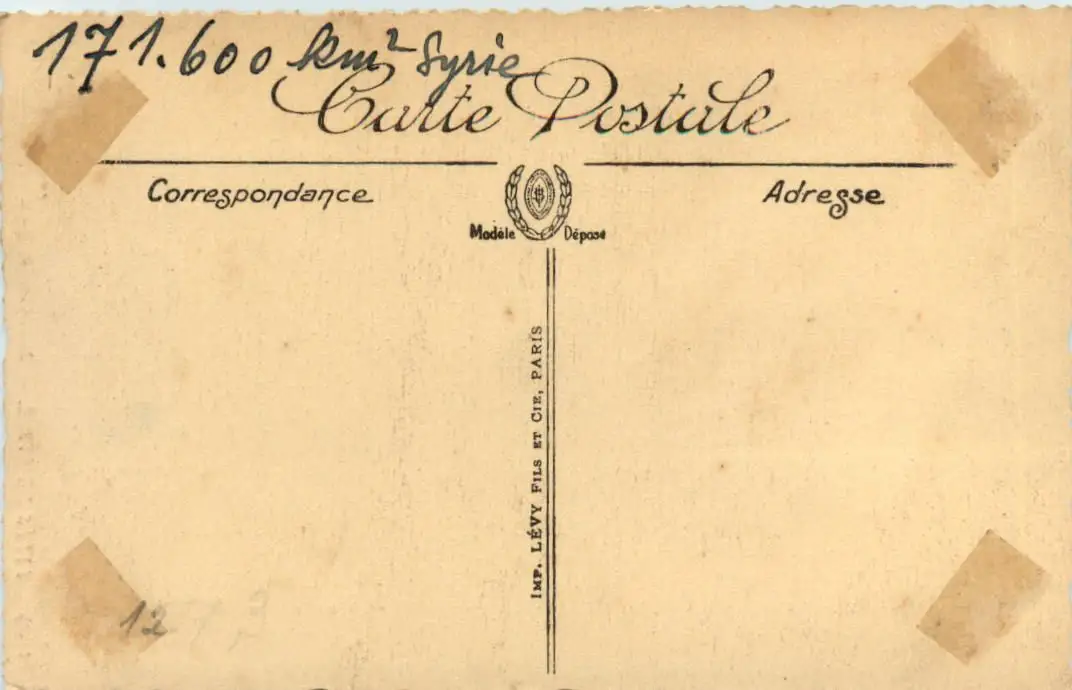 171.600 km² Syrie
Carte Postale
Correspondance
Adresse
Modèle Déposé
IMP. LÉVY FILS ET CIE, PARIS
12